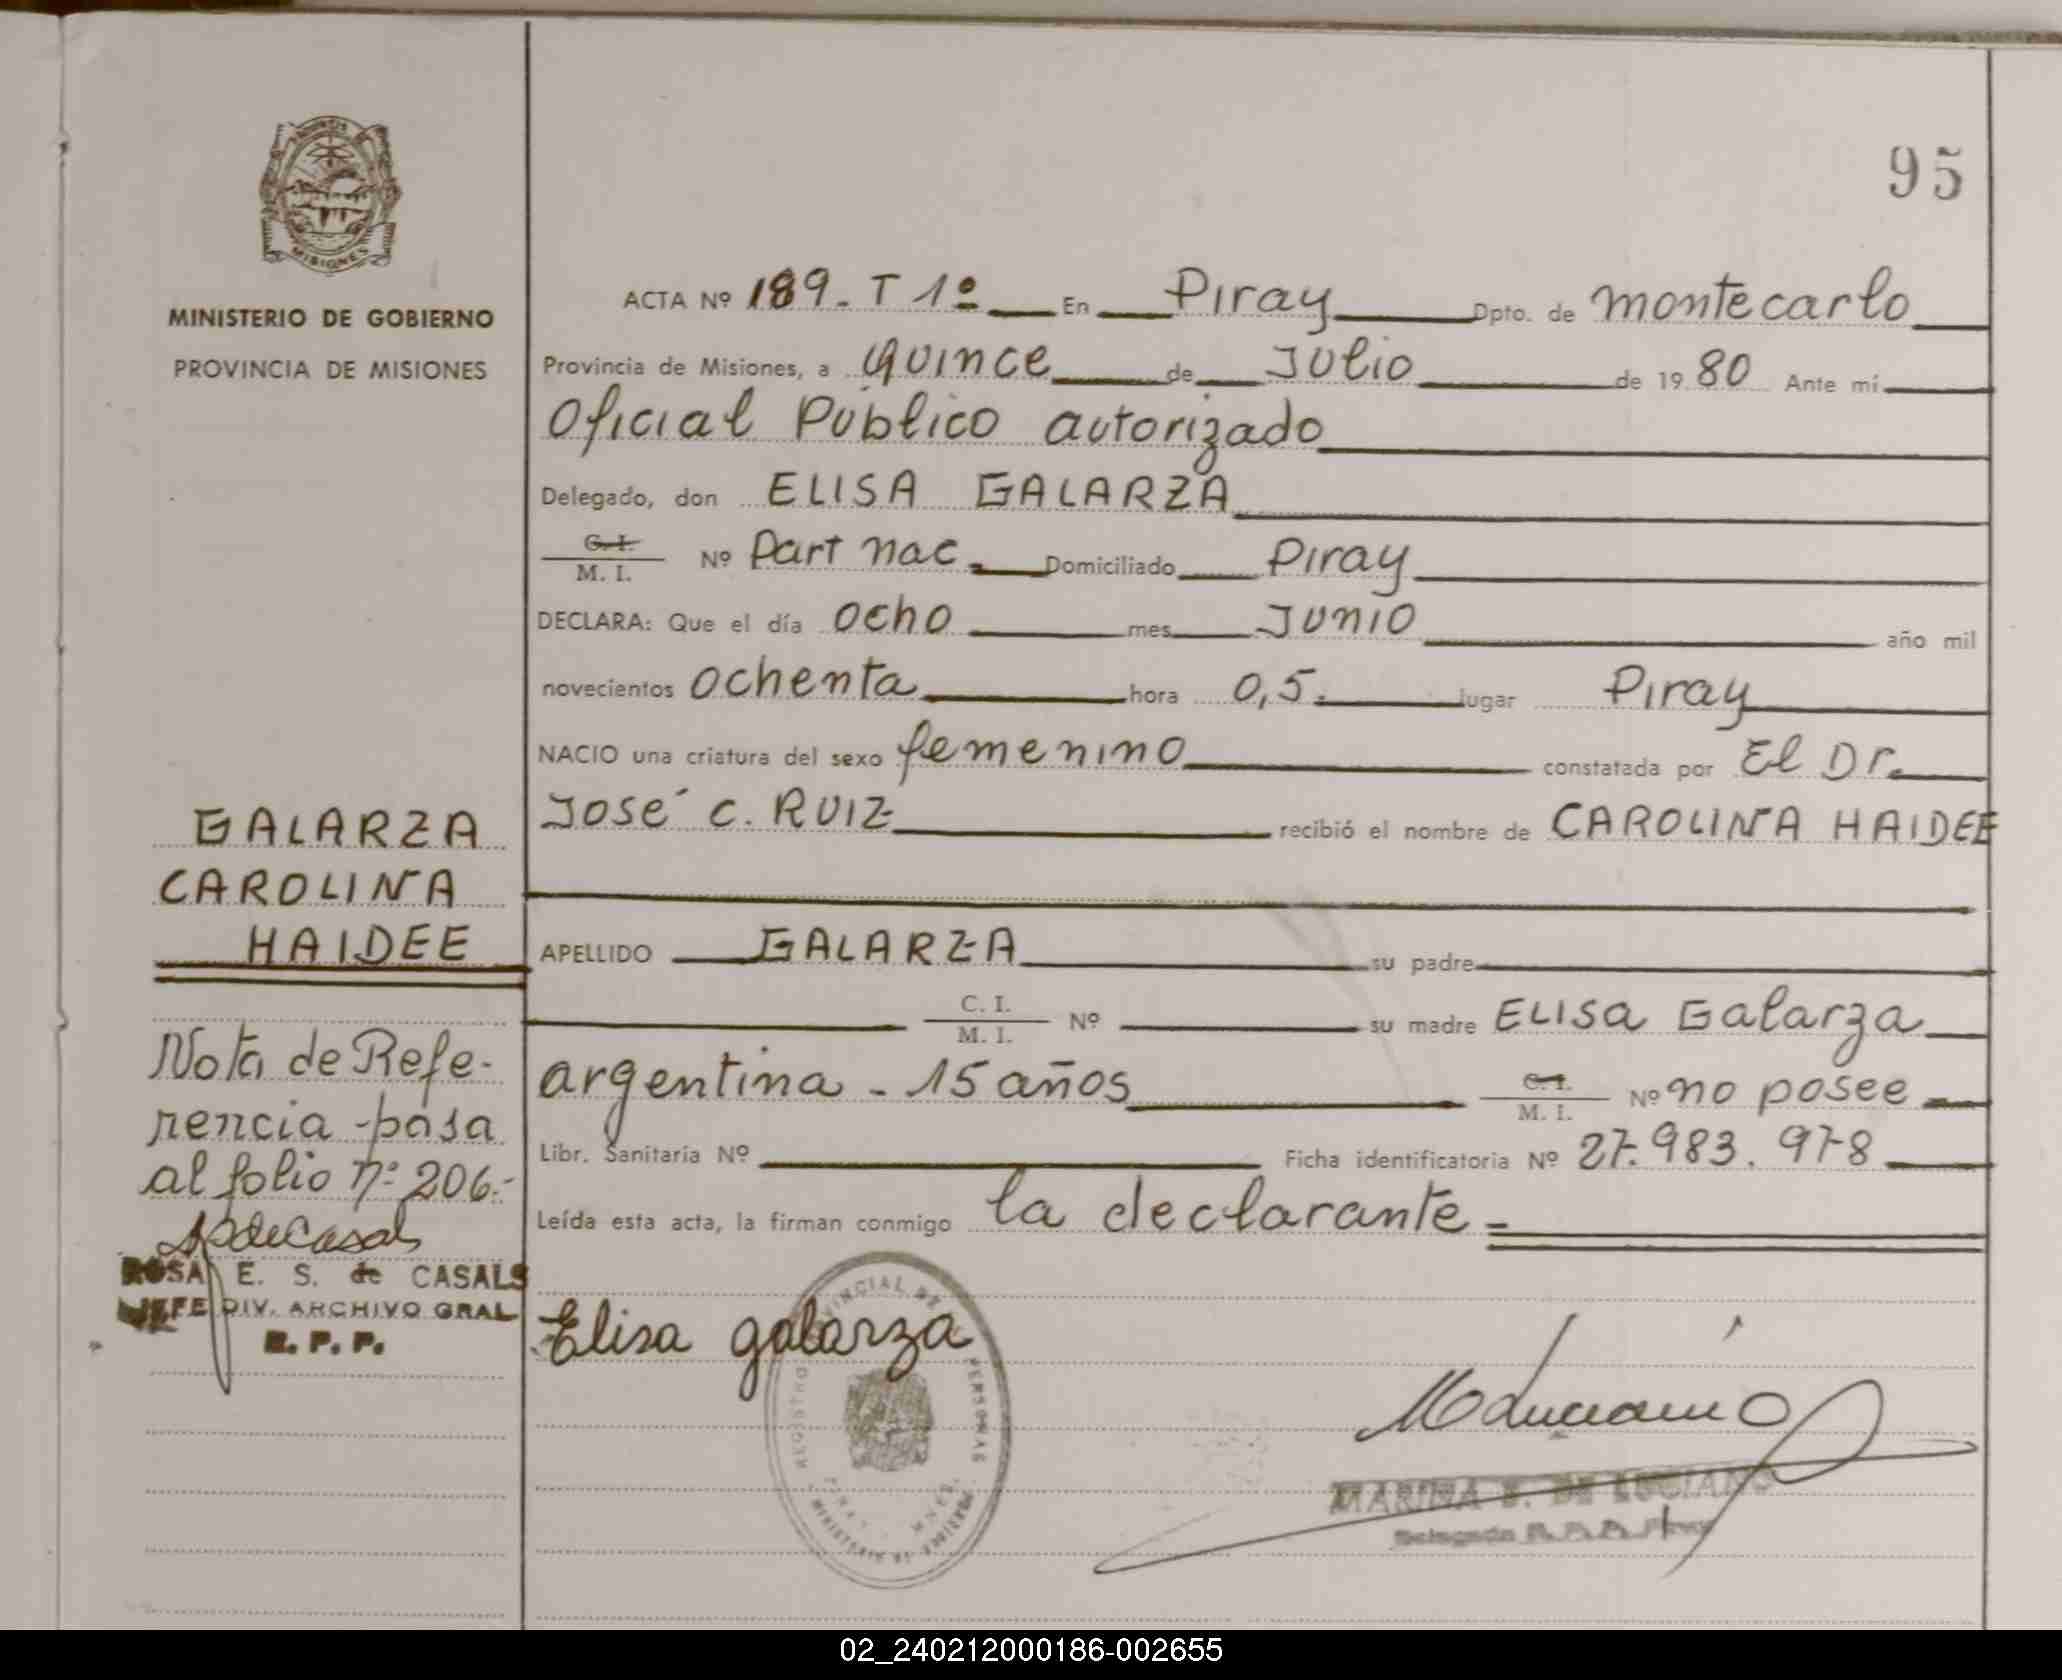 95
MISIONES
MINISTERIO DE GOBIERNO
PROVINCIA DE MISIONES
ACTA Nº 189. T 1º En Piray Dpto. de montecarlo
Provincia de Misiones, a quince de Julio de 1980 Ante mí
Oficial Público autorizado
Delegado, don ELISA GALARZA
C. I.
M. I. Nº Part nac. Domiciliado Piray
DECLARA: Que el día ocho mes Junio año mil
novecientos ochenta hora 0,5. lugar Piray
NACIO una criatura del sexo femenino constatada por El Dr.
José C. RUIZ recibió el nombre de CAROLINA HAIDEE
APELLIDO GALARZA su padre
C. I.
M. I. Nº su madre ELISA Galarza
argentina - 15 años C. I.
M. I. Nº no posee
Libr. Sanitaria Nº Ficha identificatoria Nº 27.983.978
Leída esta acta, la firman conmigo la declarante
GALARZA
CAROLINA
HAIDEE
Nota de Refe-
rencia - pasa
al folio nº 206.-
ROSA E. S. de CASALS
JEFE DIV. ARCHIVO GRAL
R. P. P.
Elisa galarza
REGISTRO PROVINCIAL DE PERSONAS
MINISTERIO DE GOBIERNO
MARINA E. DE LUCIANO
02_240212000186-002655